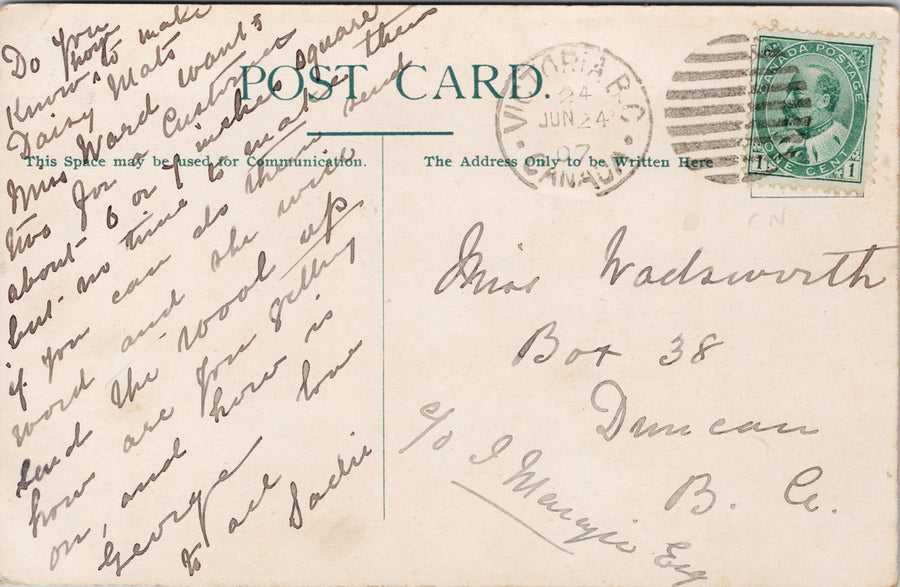 Do you
know how to make
Daisy Mats
Mrs Ward wants
two for a Customer
about 6 or 7 inches square
but no time to make them
if you can do them send
word and she will
send the wool up
how are you getting
on, and how is
George love
to all Sadie
POST CARD.
This Space may be used for Communication.
The Address Only to be Written Here
VICTORIA B.C.
24
JUN 24
07
CANADA
CANADA POSTAGE
1 ONE CENT 1
CN
Miss Wadsworth
Box 38
Duncan
B. C.
c/o J Esq